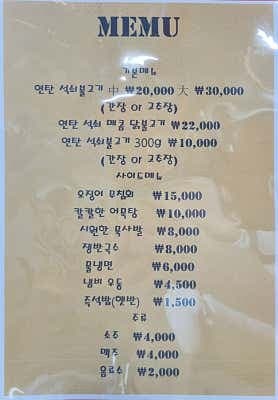 MEMU
기본메뉴
연탄 석쇠불고기 中 ₩20,000 大 ₩30,000
(간장 or 고추장)
연탄 석쇠 매콤 닭불고기 ₩22,000
연탄 석쇠불고기 300g ₩10,000
(간장 or 고추장)
사이드메뉴
오징어 무침회 ₩15,000
칼칼한 어묵탕 ₩10,000
시원한 묵사발 ₩8,000
쟁반국수 ₩8,000
물냉면 ₩6,000
냄비 우동 ₩4,500
즉석밥(햇반) ₩1,500
주류
소주 ₩4,000
맥주 ₩4,000
음료수 ₩2,000